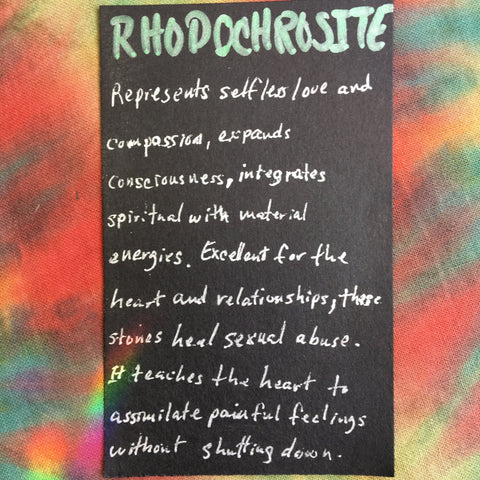 RHODOCHROSITE
Represents selfless love and
compassion, expands
consciousness, integrates
spiritual with material
energies. Excellent for the
heart and relationships, these
stones heal sexual abuse.
It teaches the heart to
assimilate painful feelings
without shutting down.